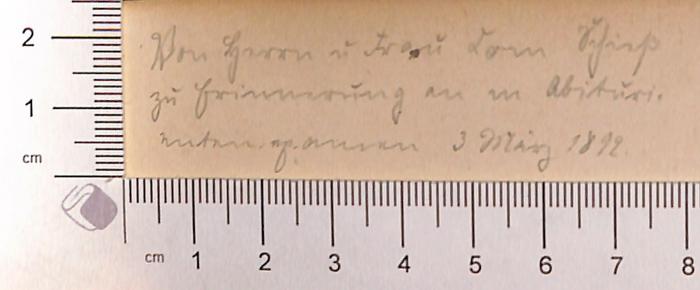 Von Herrn u Frau Com Schieß
zu Erinnerung an m Abituri-
enten examen 3 März 1892.
2
1
cm
cm 1 2 3 4 5 6 7 8